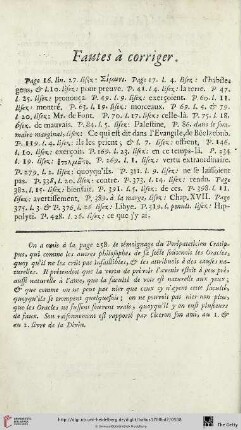 Fautes à corriger.
Page 16. lin. 27. lisez: Σίμωνι. Page 17. l. 4. lisez: d'habiles
gens, & l. 10. lisez: pour preuve. P. 41. l. 4. lisez: la terre. P. 47.
l. 25. lisez: prononça. P. 49. l. 9. lisez: exerçoient. P. 60. l. 11.
lisez: montré. P. 63. l. 19. lisez: morceaux. P. 69. l. 4. & 79.
l. 20. lisez: Mr. de Font. P. 70. l. 17. lisez: celle-là. P. 75. l. 18.
lisez: de mauvais. P. 84. l. 5. lisez: Palestine, P. 86. dans le som-
maire marginal, lisez: Ce qui est dit dans l'Evangile, de Béelzebub.
P. 119. l. 4. lisez: ils les prient, & l. 7. lisez: offrent, P. 146.
l. 10. lisez: exorcizé. P. 169. l. 23. lisez: en ce temps-là. P. 238
l. 19. lisez: P. 269. l. 1. lisez: vertu extraordinaire.
P. 279. l. 2. lisez: quoyqu'ils. P. 331. l. 9. lisez: ne se laissoient
pas. P. 338. l. 20. lisez: contre. P. 373. l. 14. lisez: tendu. Page
382. l. 15. lisez: bienfait. P. 391. l. 5. lisez: de ces. P. 398. l. 11.
lisez: avertissement, P. 389. à la marge, lisez: Chap. XVII. Page
375. l. 3. & P. 376. l. 26 lisez: Libye. P. 319. l. penult. lisez: Hip-
polyti. P. 428. l. 26. lisez: ce que j'y ai.
On a omis à la page 258. le témoignage du Peripateticien Cratip-
pus, qui comme les autres philosophes de sa secte soûtenoit les Oracles,
quoy qu'il ne les crût pas infaillibles, & les attribuoit à des causes na-
turelles. Il prétendoit que la vertu de prévoir l'avenir estoit à peu prés
aussi naturelle à l'ame, que la faculté de voir est naturelle aux yeux;
& que comme on ne peut pas nier que ceux-cy n'ayent cette faculté,
quoyqu'ils se trompent quelquefois; on ne pouvoit pas nier non plus,
que les Oracles ne fussent souvent vrais, quoyqu'il y en eust plusieurs
de faux. Son raisonnement est rapporté par Ciceron son ami, au 1. &
au 2. livre de la Divin.